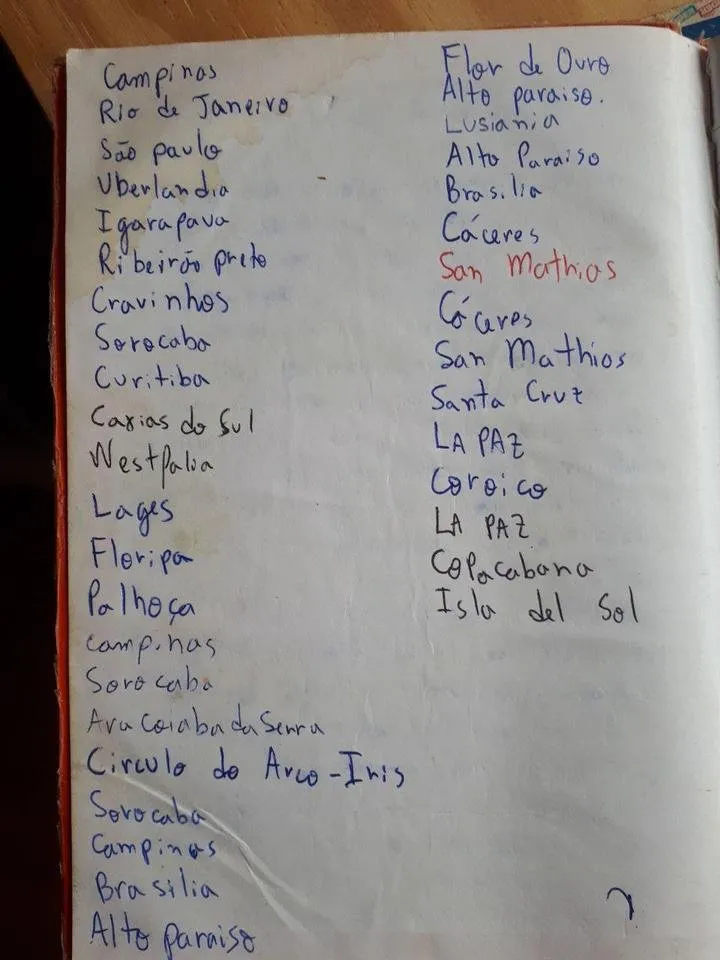 Campinas
Rio de Janeiro
São paulo
Uberlandia
Igarapava
Ribeirão preto
Cravinhos
Sorocaba
Curitiba
Caxias do Sul
Westfalia
Lages
Floripa
Palhoça
Campinas
Sorocaba
Aracoiaba da Serra
Circulo do Arco-Iris
Sorocaba
Campinas
Brasilia
Alto paraiso
Flor de Ouro
Alto paraiso.
Lusiania
Alto Paraiso
Brasilia
Cáceres
San Mathias
Cáceres
San Mathias
Santa Cruz
LA PAZ
Coroico
LA PAZ
Copacabana
Isla del Sol